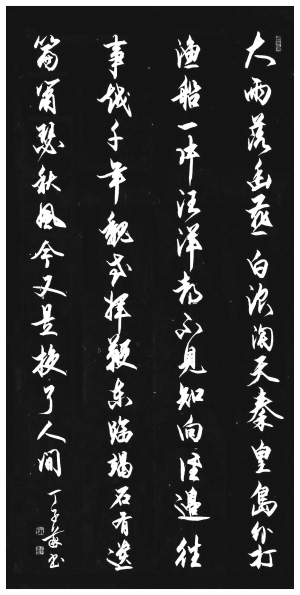 大雨落幽燕白浪淘天秦皇島外打
漁船一片汪洋都不見知向誰邊往
事越千年魏武揮鞭東臨碣石有遺
篇蕭瑟秋風今又是換了人間
書